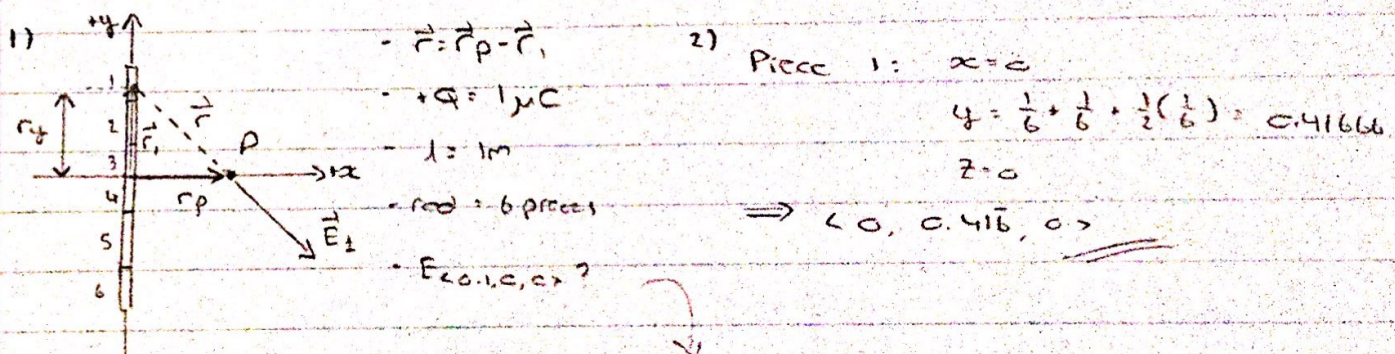 1)
+y
1
2
3
4
5
6
ry
r⃗₁
r⃗
P
+x
rp
E⃗₁
- r⃗ = r⃗p - r⃗₁
- +Q = 1μC
- l = 1m
- rod = 6 pieces
- E<0.1,0,0> ?
2)
Piece 1: x=0
y = 1/6 + 1/6 + 1/2(1/6) = 0.41666
z=0
⇒ <0, 0.416̄, 0>